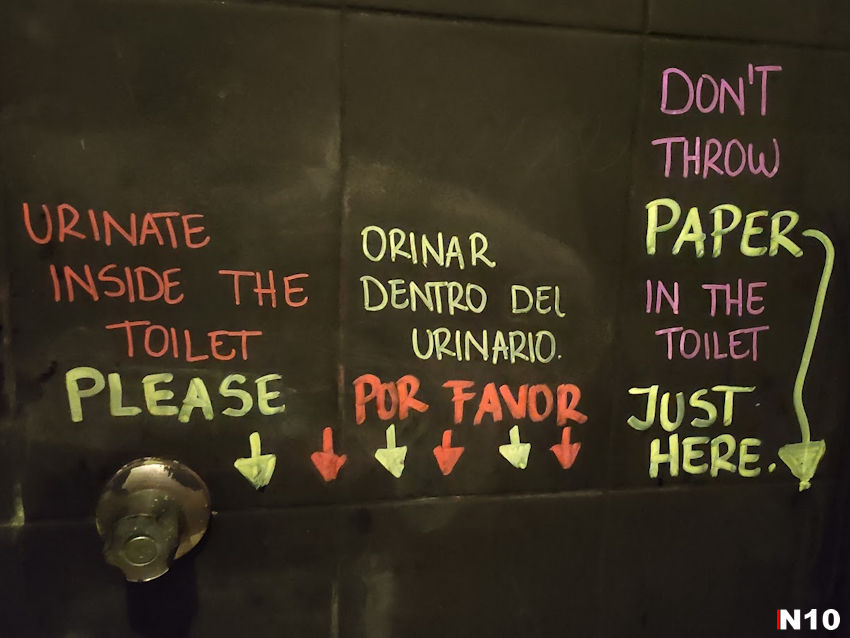 URINATE
INSIDE THE
TOILET
PLEASE
ORINAR
DENTRO DEL
URINARIO.
POR FAVOR
DON'T
THROW
PAPER
IN THE
TOILET
JUST
HERE.
N10